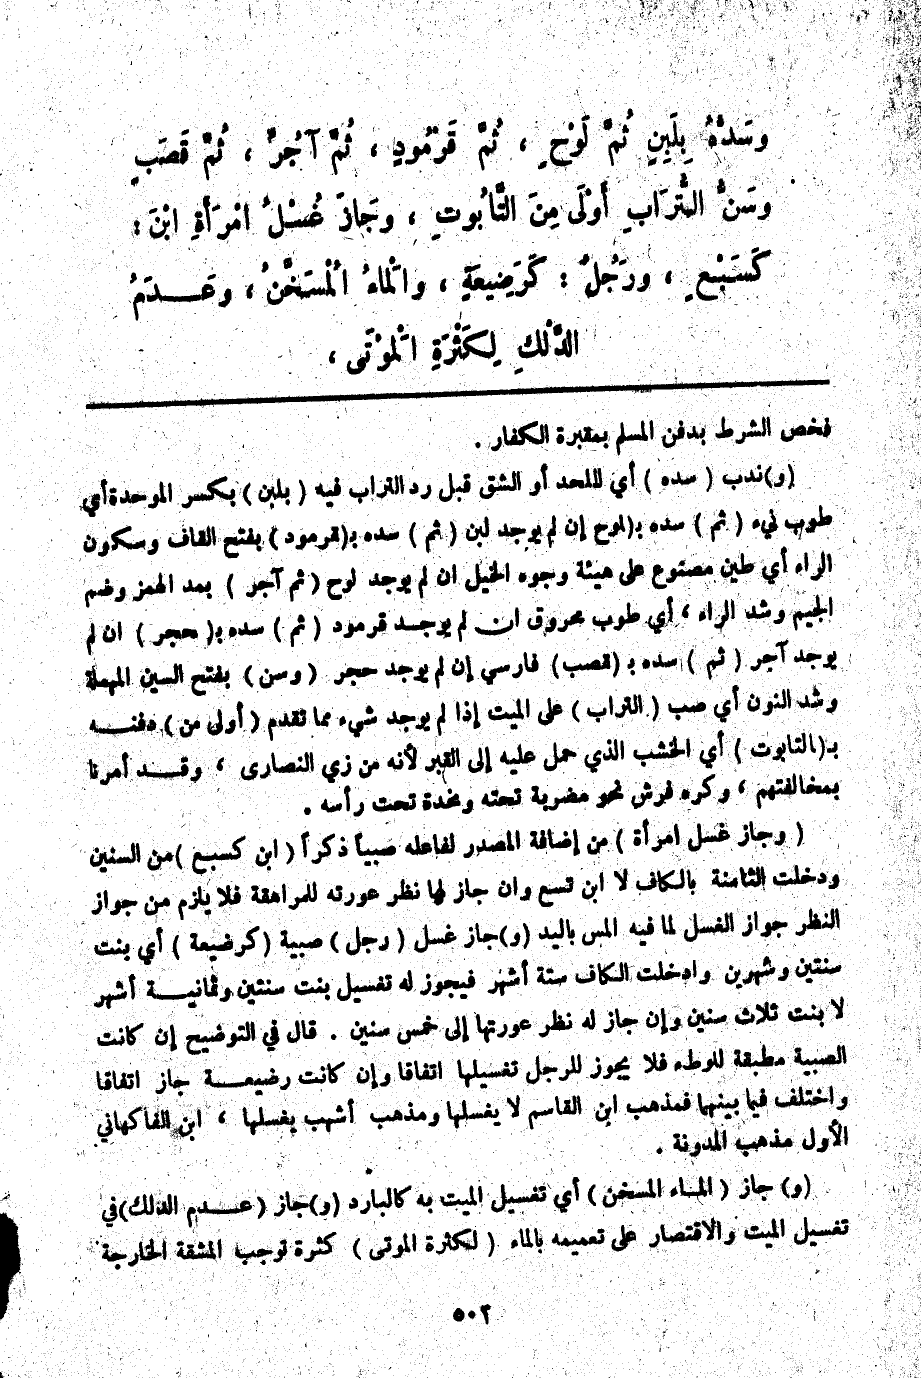 وسَدُّهُ بِلَبِنٍ ثُمَّ لَوْحٍ ، ثُمَّ قَرْمُودٍ ، ثُمَّ آجُرٍّ ، ثُمَّ قَصَبٍ
وسَنُّ التُّرَابِ أَوْلَى مِنَ التَّابُوتِ ، وجَازَ غُسْلُ امْرَأَةٍ ابْنَ :
كَسَبْعٍ ، ورَجُلٌ : كَرَضِيعَةٍ ، والْمَاءُ الْمُسَخَّنُ ، وعَدَمُ
الدَّلْكِ لِكَثْرَةِ الْمَوْتَى ،
فخص الشرط بدفن المسلم بمقبرة الكفار .
(و)ندب ( سده ) أي للحد أو الشق قبل رد التراب فيه ( بلبن ) بكسر الموحدة أي
طوب نيء ( ثم ) سده بـ(لوح إن لم يوجد لبن ( ثم ) سده بـ(قرمود ) بفتح القاف وسكون
الراء أي طين مصنوع على هيئة وجوه الخيل ان لم يوجد لوح ( ثم آجر ) بمد الهمز وضم
الجيم وشد الراء ، أي طوب محروق ان لم يوجد قرمود ( ثم ) سده بـ( حجر ) ان لم
يوجد آجر ( ثم ) سده بـ (قصب) فارسي إن لم يوجد حجر ( وسن ) بفتح السين المهملة
وشد النون أي صب ( التراب ) على الميت إذا لم يوجد شيء مما تقدم ( أولى من ) دفنه
بـ(التابوت ) أي الخشب الذي حمل عليه إلى القبر لأنه من زي النصارى ، وقد أمرنا
بمخالفتهم ، وكره فرش نحو مضربة تحته ومخدة تحت رأسه .
( وجاز غسل امرأة ) من إضافة المصدر لفاعله صبياً ذكراً ( ابن كسبع )من السنين
ودخلت الثامنة بالكاف لا ابن تسع وان جاز لها نظر عورته للمراهقة فلا يلزم من جواز
النظر جواز الغسل لما فيه المس باليد (و)جاز غسل ( رجل ) صبية (كرضيعة ) أي بنت
سنتين وشهرين وادخلت الكاف ستة أشهر فيجوز له تغسيل بنت سنتين وثمانية أشهر
لا بنت ثلاث سنين وإن جاز له نظر عورتها إلى خمس سنين . قال في التوضيح إن كانت
الصبية مطيقة للوطء فلا يجوز للرجل تغسيلها اتفاقا وإن كانت رضيعة جاز اتفاقا
واختلف فيما بينهما فمذهب ابن القاسم لا يغسلها ومذهب أشهب يغسلها ، ابن الفاكهاني
الأول مذهب المدونة .
(و) جاز ( الماء المسخن ) أي تغسيل الميت به كالبارد (و)جاز ( عدم الدلك)في
تغسيل الميت والاقتصار على تعميمه بالماء ( لكثرة الموتى ) كثرة توجب المشقة الخارجة
٥٠٢